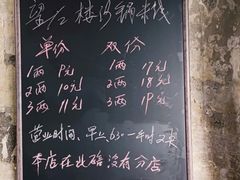 望江楼沙锅米线
单份 双份
1两 9元 1两 17元
2两 10元 2两 18元
3两 11元 3两 19元
营业时间,早上6:30—午时2点
本店在此路没有分店